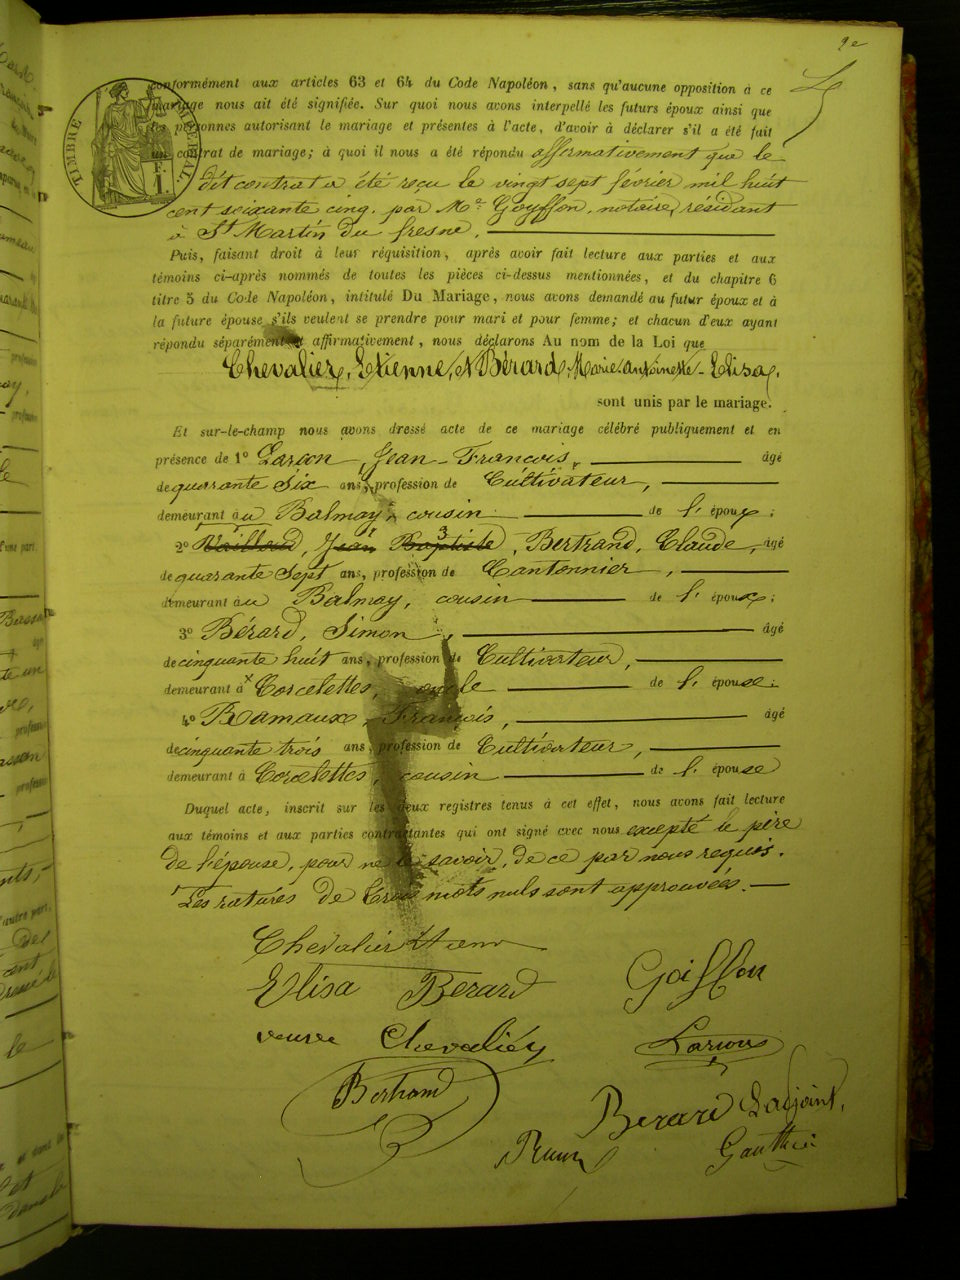 2e
conformément aux articles 63 et 64 du Code Napoléon, sans qu'aucune opposition à ce
mariage nous ait été signifiée. Sur quoi nous avons interpellé les futurs époux ainsi que
les personnes autorisant le mariage et présentes à l'acte, d'avoir à déclarer s'il a été fait
un contrat de mariage; à quoi il nous a été répondu affirmativement que le
TIMBRE IMPÉRIAL
F.
1.
dit contrat a été reçu le vingt sept février mil huit
cent soixante cinq, par Me Goyffon, notaire, résidant
à St Martin du fresne,
Puis, faisant droit à leur réquisition, après avoir fait lecture aux parties et aux
témoins ci-après nommés de toutes les pièces ci-dessus mentionnées, et du chapitre 6
titre 5 du Code Napoléon, intitulé Du Mariage, nous avons demandé au futur époux et à
la future épouse s'ils veulent se prendre pour mari et pour femme; et chacun d'eux ayant
répondu séparément et affirmativement, nous déclarons Au nom de la Loi que
Chevalier, Etienne, et Bérard, Marie-antoinette-Elisa,
sont unis par le mariage.
Et sur-le-champ nous avons dressé acte de ce mariage célébré publiquement et en
présence de 1o Larçon, Jean-François, âgé
de quarante Six ans, profession de Cultivateur,
demeurant au Balmay, cousin de l'époux;
2o Vailloud, Jean Baptiste, Bertrand, Claude, âgé
de quarante Sept ans, profession de Cantonnier,
demeurant au Balmay, cousin de l'époux;
3o Bérard, Simon, âgé
de cinquante huit ans, profession de Cultivateur,
demeurant à Corcelettes, oncle de l'épouse;
4o Ramaux, François, âgé
de cinquante trois ans, profession de Cultivateur,
demeurant à Corcelettes, cousin de l'épouse
Duquel acte, inscrit sur les deux registres tenus à cet effet, nous avons fait lecture
aux témoins et aux parties contractantes qui ont signé avec nous excepté le père
de l'épouse, pour ne le savoir, de ce par nous requis.
Les ratures de trois mots nuls sont approuvées.
Chevalier Etienne
Elisa Berard Goiffon
veuve Chevaliéy Larçon
Bertrand
Berard L'adjoint,
Gauthier